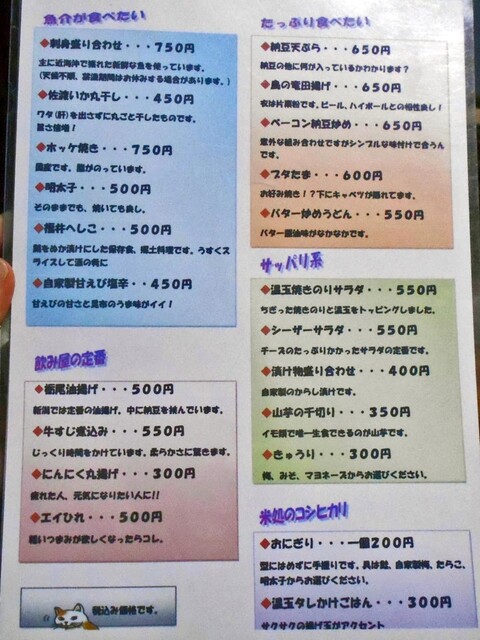 魚介が食べたい
◆刺身盛り合わせ・・・750円
主に近海沖で穫れた新鮮な魚を使っています。
(天候不順、禁漁期間はお休みする場合があります。)
◆佐渡いか丸干し・・・450円
ワタ(肝)を出さずに丸ごと干したものです。
旨さ倍増!
◆ホッケ焼き・・・750円
国産です。脂がのっています。
◆明太子・・・500円
そのままでも、焼いても良し。
◆福井へしこ・・・500円
鯖をぬか漬けにした保存食、郷土料理です。うすくス
ライスして酒の肴に
◆自家製甘えび塩辛・・450円
甘えびの甘さと昆布のうま味がイイ!
飲み屋の定番
◆栃尾油揚げ・・・500円
新潟では定番の油揚げ。中に納豆を挟んでいます。
◆牛すじ煮込み・・・550円
じっくり時間をかけています。柔らかさに驚きます。
◆にんにく丸揚げ・・・300円
疲れた人、元気になりたい人に!!
◆エイひれ・・・500円
軽いつまみが欲しくなったらコレ。
税込み価格です。
たっぷり食べたい
◆納豆天ぷら・・・650円
納豆の他に何が入っているかわかります?
◆鳥の竜田揚げ・・・650円
衣は片栗粉です。ビール、ハイボールとの相性良し!
◆ベーコン納豆炒め・・・650円
意外な組み合わせですがシンプルな味付けで合うん
です。
◆ブタたま・・・600円
お好み焼き!?下にキャベツが隠れてます。
◆バター炒めうどん・・・550円
バター醤油味がなかなかです。
サッパリ系
◆温玉焼きのりサラダ・・・550円
ちぎった焼きのりと温玉をトッピングしました。
◆シーザーサラダ・・・550円
チーズのたっぷりかかったサラダの定番です。
◆漬け物盛り合わせ・・・400円
自家製のからし漬けです。
◆山芋の千切り・・・350円
イモ類で唯一生食できるのが山芋です。
◆きゅうり・・・300円
梅、みそ、マヨネーズからお選びください。
米処のコシヒカリ
◆おにぎり・・・一個200円
型にはめずに手握りです。具は鮭、自家製梅、たらこ、
明太子からお選びください。
◆温玉タレかけごはん・・・300円
サクサクの揚げ玉がアクセント